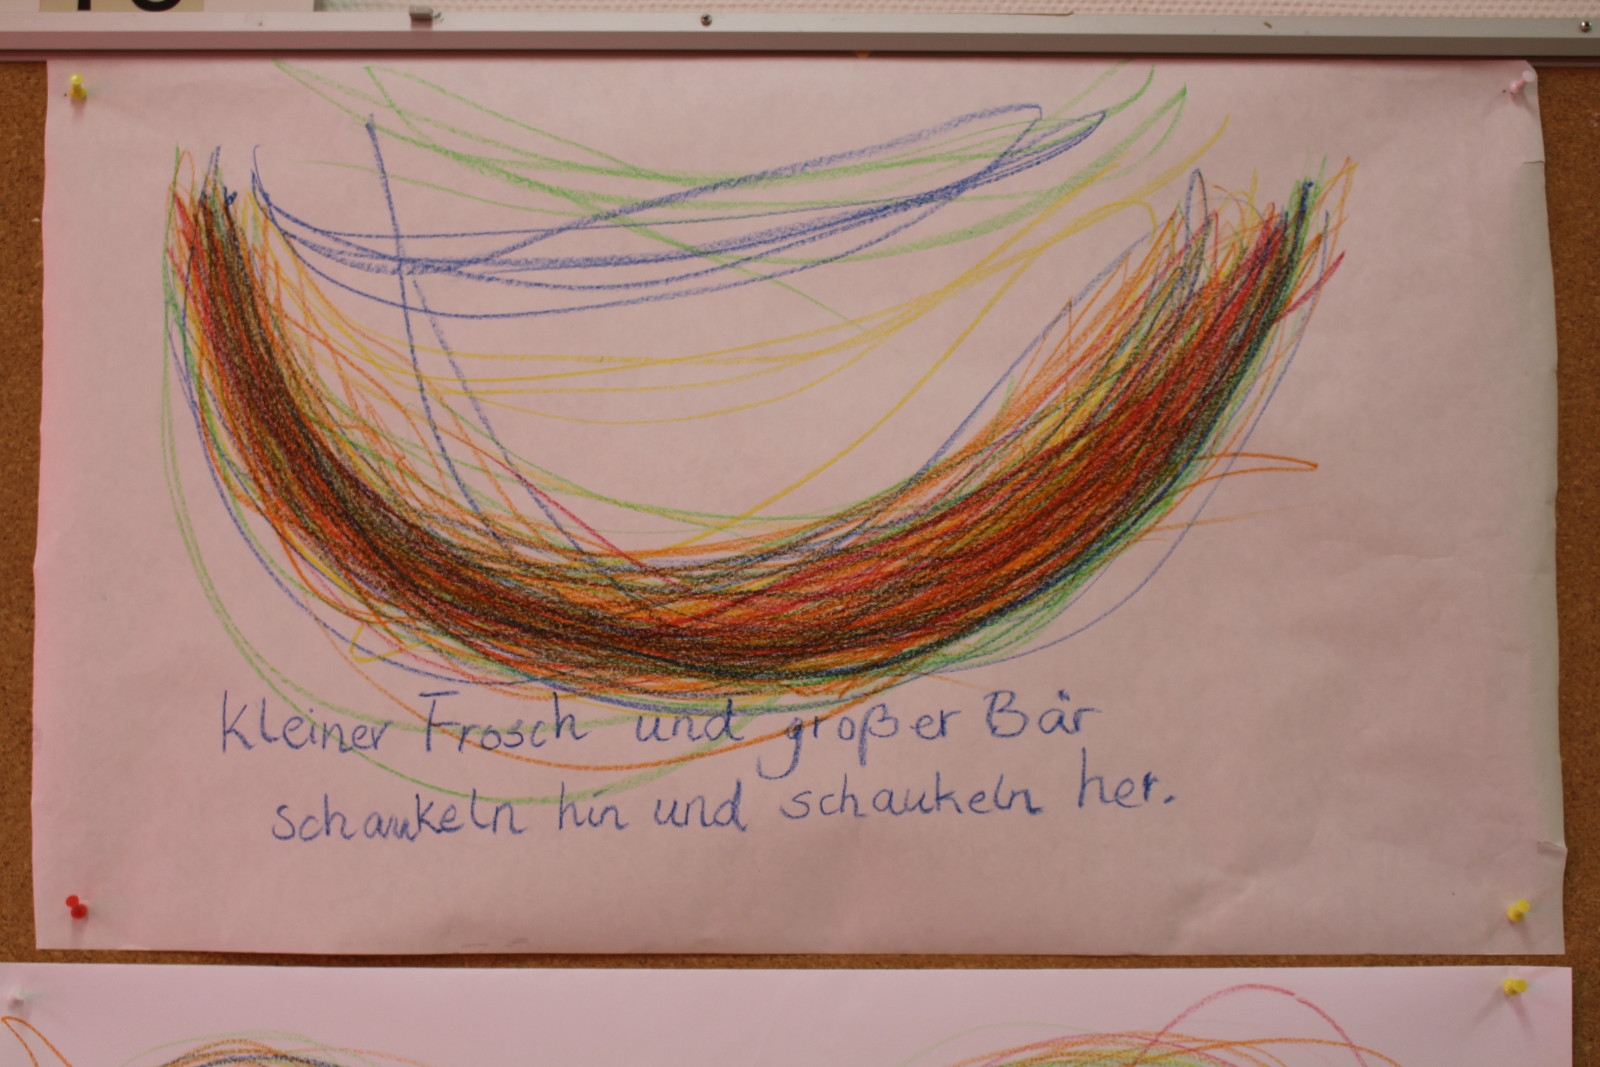 Kleiner Frosch und großer Bär
schaukeln hin und schaukeln her.